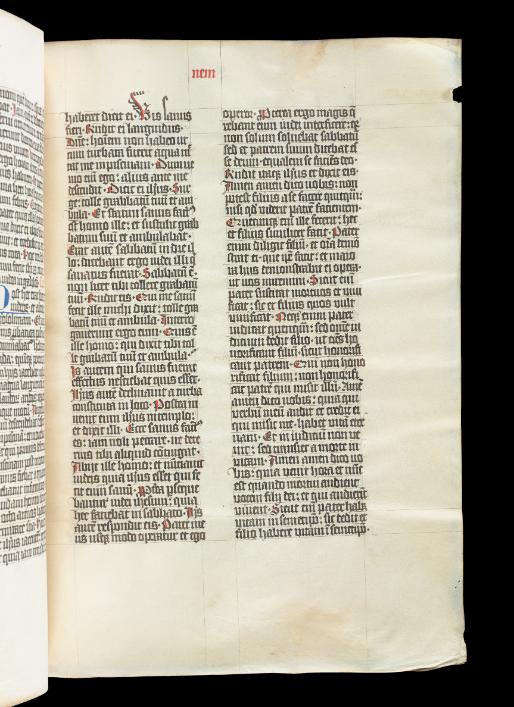 nem
haberet dicit ei. Vis sanus
fieri. Rñdit ei languidus.
Dñe: hoıem non habeo ut
cum turbata fuerit aqua mit
tat me in piscinam. Dum ve
nio eım ego: alius ante me
descendit. Dicit ei ihsus. Sur
ge: tolle grabbatū tuū et am
bula. Et statim sanus factꝰ
est homo ille: et sustulit grab
batum suū et ambulabat.
Erat autē sabbatū in die il
lo. dicebant ergo iudei illi q̄
sanatus fuerat. Sabbatū ē.
non licet tibi tollere grabatū
tuū. Rñdit eis. Qui me sanū
fecit ille michi dixit: tolle gra
batū tuū et ambula. Interro
gauerunt ergo eum. Quis ē
ille homo: qui dixit tibi tol
le grabatū tuū et ambula.
Is autem qui sanus fuerat
effectus nesciebat quis esset.
Ihsus autē declinauit a turba
constituta in loco. Postea in
uenit eum ihsus in templo:
et dixit illi. Ecce sanus factꝰ
es: iam noli peccare. ne dete
rius tibi aliquid cōtingat.
Abijt ille homo: et nūciauit
iudeis quia ihsus esset qui fe
cit eum sanū. Ppterea pseque
bantur iudei ihesum: quia
hec faciebat in sabbato. Ihs
autē respondit eis. Pater me
us usq̄ modo operatur et ego
operor. Pterea ergo magis q̄
rebant eum iudei interficere: q̄
non solum soluebat sabbatū
sed et patrem suum dicebat eē
se deum: equalem se faciēs deo.
Rñdit itaq̄ ihsus et dixit eis.
Amen amen dico vobis: non
potest filius a se facere quicqm̄:
nisi qd̄ viderit patrē facientem.
Quecumq̄ eım ille fecerit: hec
et filius similiter facit. Pater
enim diligit filiū. et oīa demō
strat ei que ip̄e facit: et maio
ra hijs demonstrabit ei opera:
ut uos miremini. Sicut eım
pater suscitat mortuos et viui
ficat: sic et filius quos vult
viuificat. Neq̄ enim pater
iudicat quemqm̄: sed omne iu
dicium dedit filio. ut oēs ho
norificent filiū: sicut honorifi
cant patrem. Qui non hono
rificat filium: non honorifi
cat patrē qui misit illū. Amē
amen dico vobis: quia qui
verbū meū audit et credit ei
qui misit me. habet vitā eter
nam. Et in iudiciū non ve
nit: sed transiet a morte in
vitam. Amen amen dico vo
bis: quia venit hora et nūc
est quando mortui audient
vocem filij dei: et qui audierīt
viuent. Sicut eım pater habz
vitam in semetip̄o: sic dedit et
filio habere vitam ī semetip̄o.